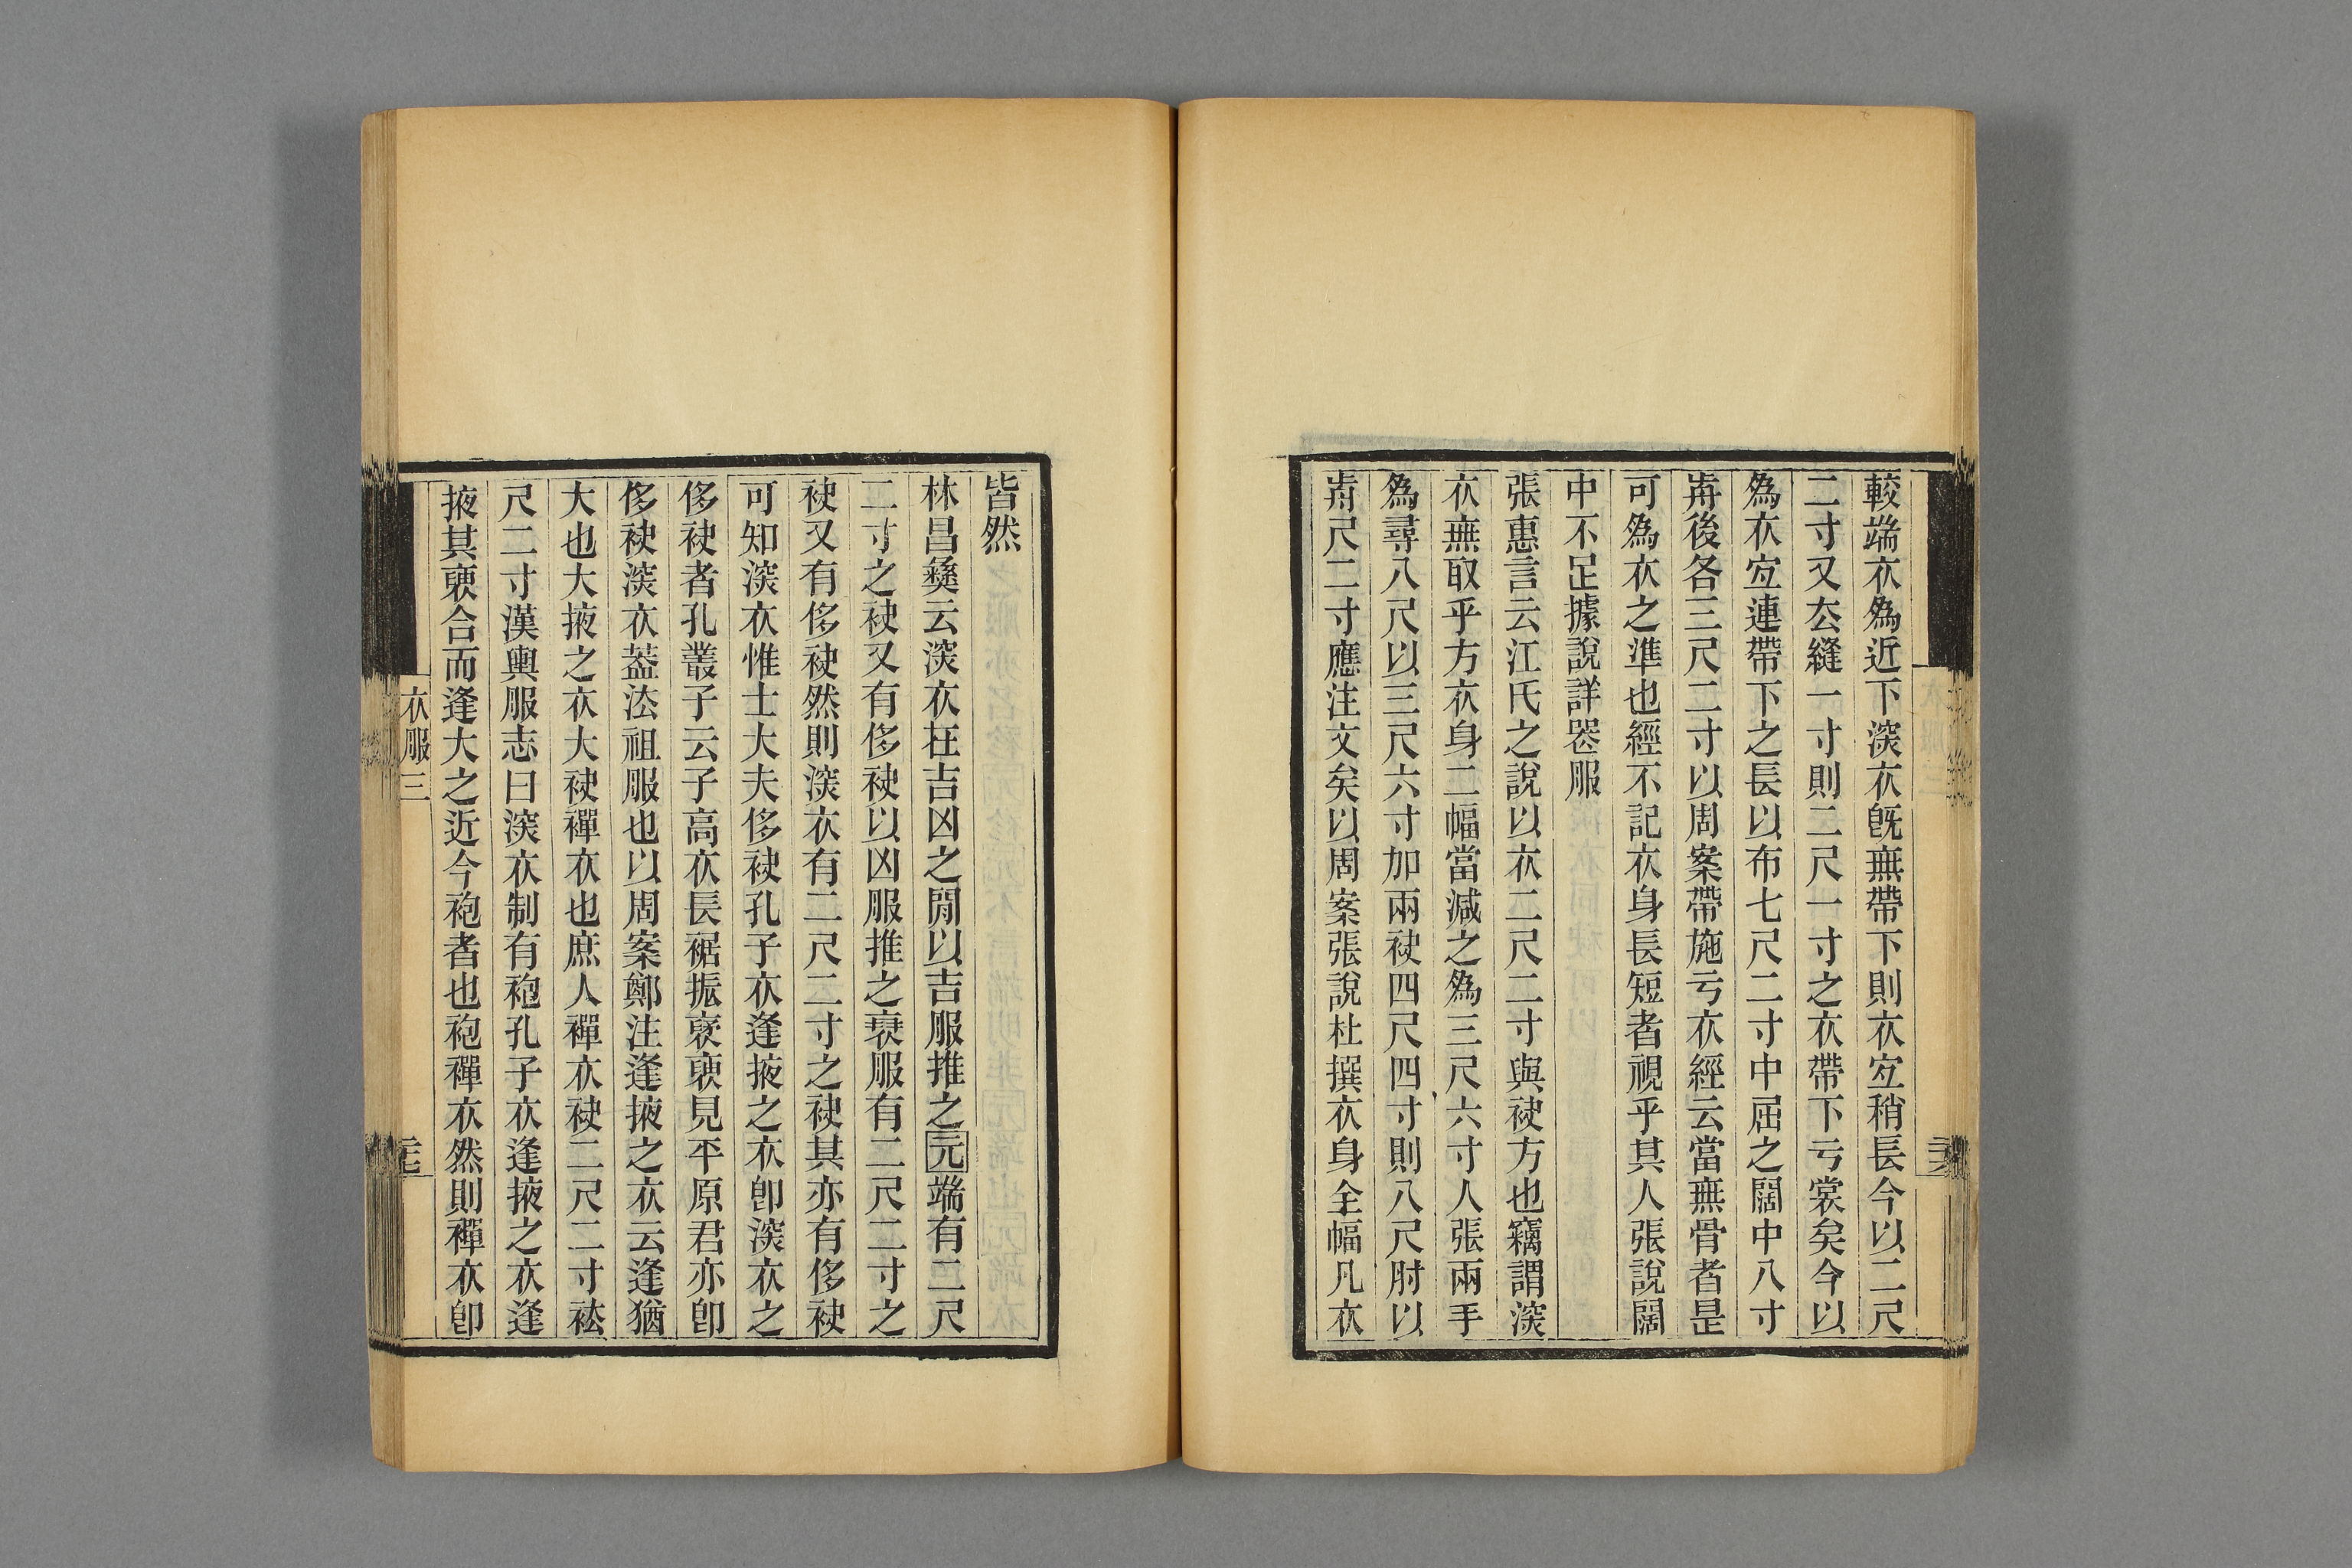 較端衣爲近下深衣旣無帶下則衣宐稍長今以二尺
二寸又厺縫一寸則二尺一寸之衣帶下亏裳矣今以
爲衣宐連帶下之長以布七尺二寸中屈之闊中八寸
歬後各三尺二寸以周案帶施亏衣經云當無骨者是
可爲衣之準也經不記衣身長短者視乎其人張說闊
中不足據說詳器服
張惠言云江氏之說以衣二尺二寸與袂方也竊謂深
衣無取乎方衣身二幅當減之爲三尺六寸人張兩手
爲尋八尺以三尺六寸加兩袂四尺四寸則八尺肘以
歬尺二寸應注文矣以周案張說杜撰衣身全幅凡衣
皆然
林昌彝云深衣在吉凶之閒以吉服推之元端有二尺
二寸之袂又有侈袂以凶服推之衰服有二尺二寸之
袂又有侈袂然則深衣有二尺二寸之袂其亦有侈袂
可知深衣惟士大夫侈袂孔子衣逢掖之衣卽深衣之
侈袂者孔叢子云子高衣長裾振襃褏見平原君亦卽
侈袂深衣葢法祖服也以周案鄭注逢掖之衣云逢猶
大也大掖之衣大袂襌衣也庶人襌衣袂二尺二寸袪
尺二寸漢輿服志曰深衣制有袍孔子衣逢掖之衣逢
掖其褏合而逢大之近今袍者也袍襌衣然則襌衣卽
衣服三